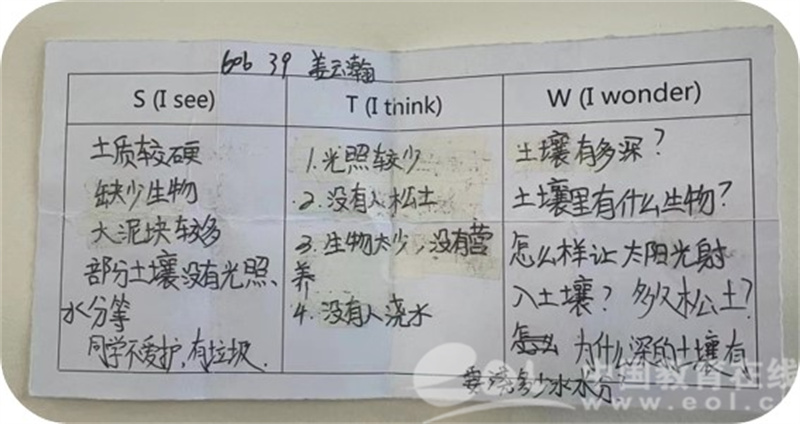 606 39 姜云瀚
S (I see)
T (I think)
W (I wonder)
土质较硬
缺少生物
大泥块较多
部分土壤没有光照、
水分等
同学不爱护,有垃圾.
1.光照较少
2.没有人松土
3.生物太少,没有营
养
4.没有人浇水
土壤有多深?
土壤里有什么生物?
怎么样让太阳光射
入土壤?多久松土?
为什么深的土壤有
要浇多少水水分.
eol 中国教育在线
www.eol.c